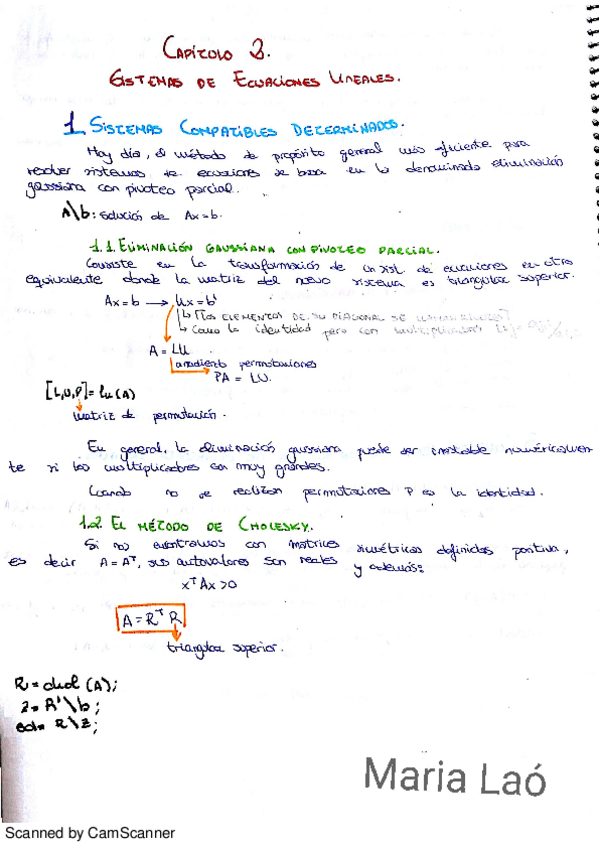 CAPÍTULO 2.
SISTEMAS DE ECUACIONES LINEALES.
1 SISTEMAS COMPATIBLES DETERMINADOS.
Hoy día, el método de propósito general más eficiente para
resolver sistemas de ecuaciones se basa en la denominada eliminación
gaussiana con pivoteo parcial.
A\b: solución de Ax=b.
1.1. ELIMINACIÓN GAUSSIANA CON PIVOTEO PARCIAL.
Consiste en la transformación de un sist. de ecuaciones en otro
equivalente donde la matriz del nuevo sistema es triangular superior.
Ax=b → Ux=b'
↳ [LOS ELEMENTOS DE SU DIAGONAL SE
↳ Como la identidad pero con multiplicadores
A = LU
añadiendo permutaciones
PA = LU.
[L,U,P]=lu(A)
matriz de permutación.
En general, la eliminación gaussiana puede ser inestable numéricamen
te si los multiplicadores son muy grandes.
Cuando no se realizan permutaciones P es la identidad.
1.2. EL MÉTODO DE CHOLESKY.
Si nos encontramos con matrices simétricas definidas positiva,
es decir A=Aᵀ, sus autovalores son reales y además:
xᵀAx>0
A=RᵀR
triangular superior.
R=chol(A);
z=R'\b;
sol=R\z;
Maria Laó
Scanned by CamScanner